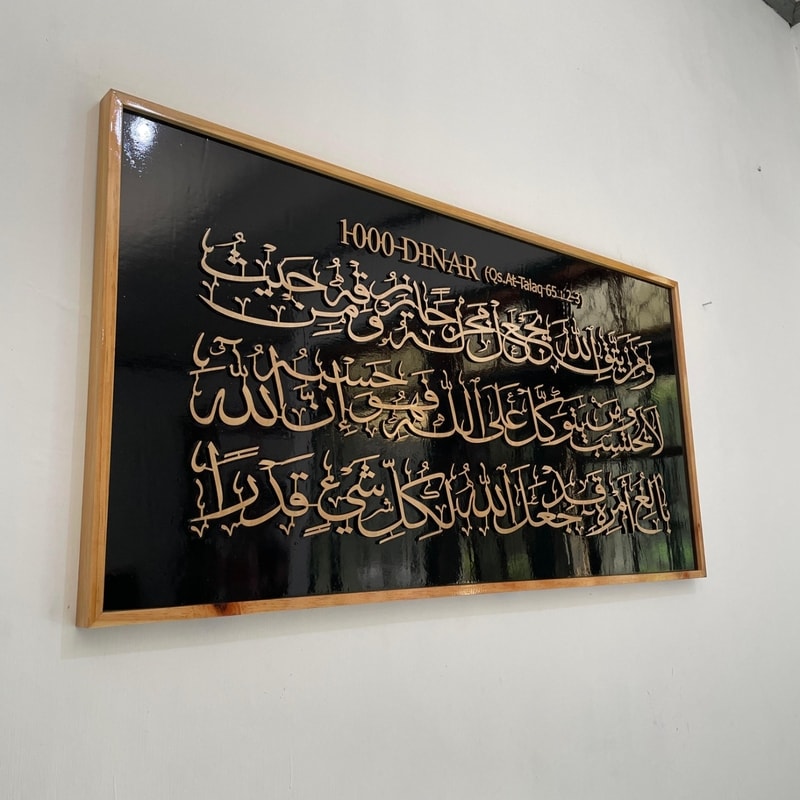 1000 DINAR
(Qs.At-Talaq 65 : 2-3)
وَمَن يَتَّقِ اللهَ يَجْعَل لَّهُ مَخْرَجًا وَيَرْزُقْهُ مِنْ حَيْثُ
لَا يَحْتَسِبُ وَمَن يَتَوَكَّلْ عَلَى اللهِ فَهُوَ حَسْبُهُ إِنَّ اللهَ
بَالِغُ أَمْرِهِ قَدْ جَعَلَ اللهُ لِكُلِّ شَيْءٍ قَدْرًا